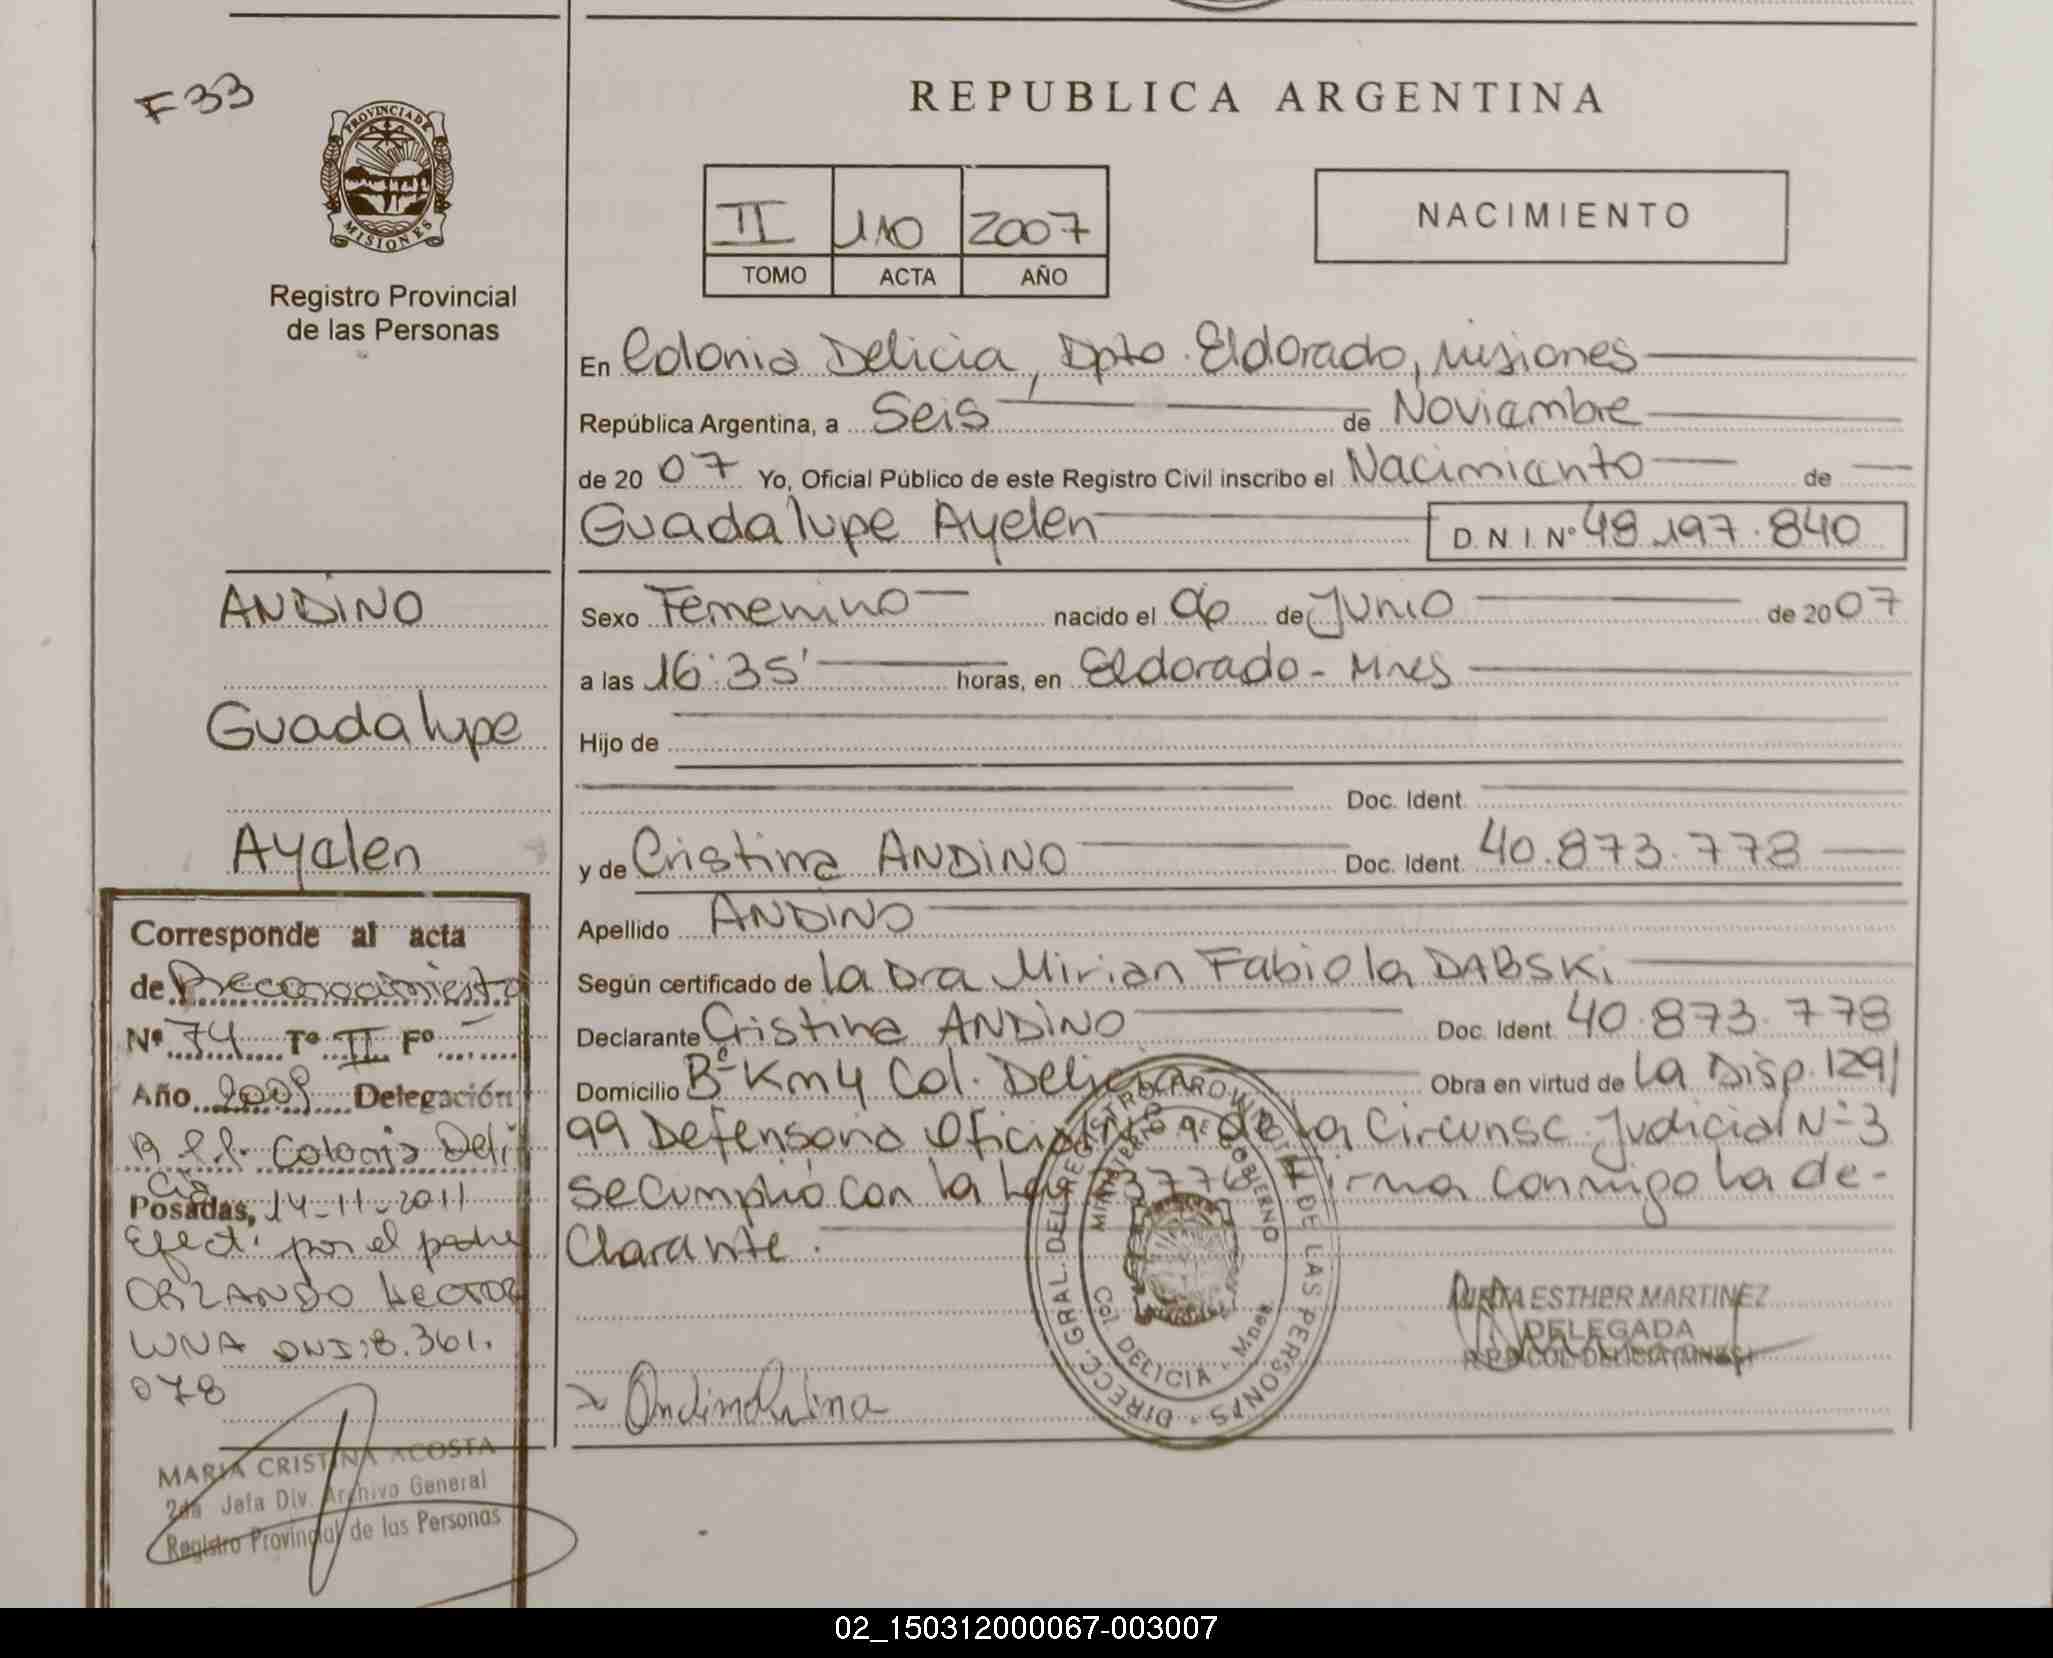 F 33
PROVINCIA DE
MISIONES
Registro Provincial
de las Personas
REPUBLICA ARGENTINA
II 110 2007
TOMO ACTA AÑO
NACIMIENTO
En Colonia Delicia, Dpto. Eldorado, Misiones
República Argentina, a Seis de Noviembre
de 20 07 Yo, Oficial Público de este Registro Civil inscribo el Nacimiento de
Guadalupe Ayelen D.N.I. Nº 48.197.840
Sexo Femenino nacido el 06 de Junio de 2007
a las 16:35' horas, en Eldorado - Mnes
Hijo de
Doc. Ident.
y de Cristina ANDINO Doc. Ident. 40.873.778
Apellido ANDINO
Según certificado de la Dra Mirian Fabiola DABSKI
Declarante Cristina ANDINO Doc. Ident. 40.873.778
Domicilio Bº Km 4 Col. Delicia Obra en virtud de la Disp. 129/
99 Defensoria Oficial de la Circunsc. Judicial Nº 3
se cumplió con la Ley 3776 Firma conmigo la de-
clarante.
ANDINO
Guadalupe
Ayelen
Corresponde al acta
de Reconocimiento
Nº 74 Tº II Fº -
Año 2009 Delegación
Colonia Deli
cia
Posadas, 14-11-2011
Efect. por el padre
ORLANDO HECTOR
LUNA DNI: 8.361.
078
MARIA CRISTINA ACOSTA
2da Jefa Div. Archivo General
Registro Provincial de las Personas
DIRECC. GRAL. DEL REGISTRO PROVINCIAL DE LAS PERSONAS
MINISTERIO DE GOBIERNO
Col. DELICIA - Mnes.
MIRTA ESTHER MARTINEZ
DELEGADA
R.P.P. COL. DELICIA (MNES)
Andino Cristina
02_150312000067-003007